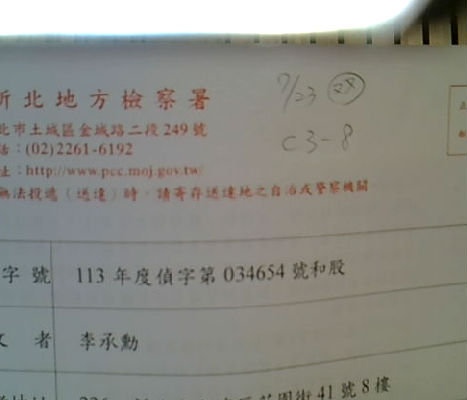 7/23
C3-8
新北地方檢察署
北市土城區金城路二段249號
話：(02)2261-6192
址：http://www.pcc.moj.gov.tw/
無法投遞（送達）時，請寄存送達地之自治或警察機關
字號 113年度偵字第034654號和股
者 李承勳
街41號8樓